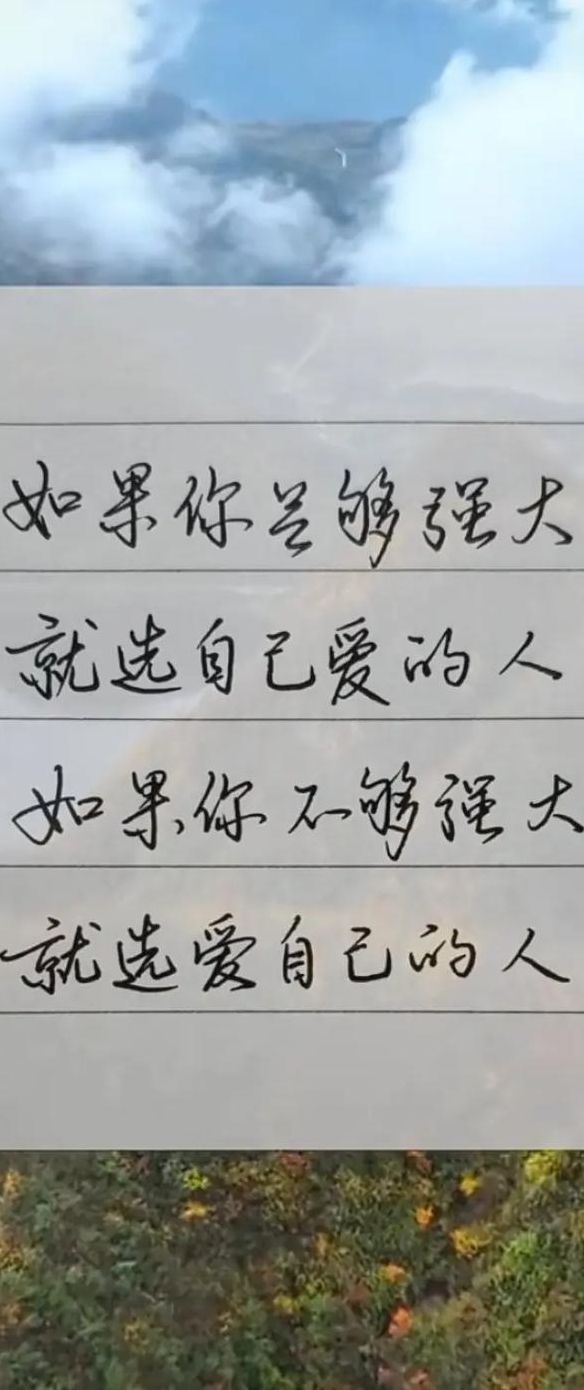 如果你足够强大
就选自己爱的人
如果你不够强大
就选爱自己的人